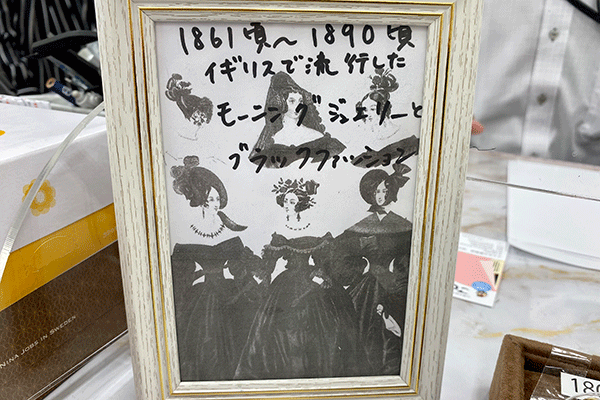 1861頃〜1890頃
イギリスで流行した
モーニングジュエリーと
ブラックファッション
NINA JOBS IN SWEDEN
180